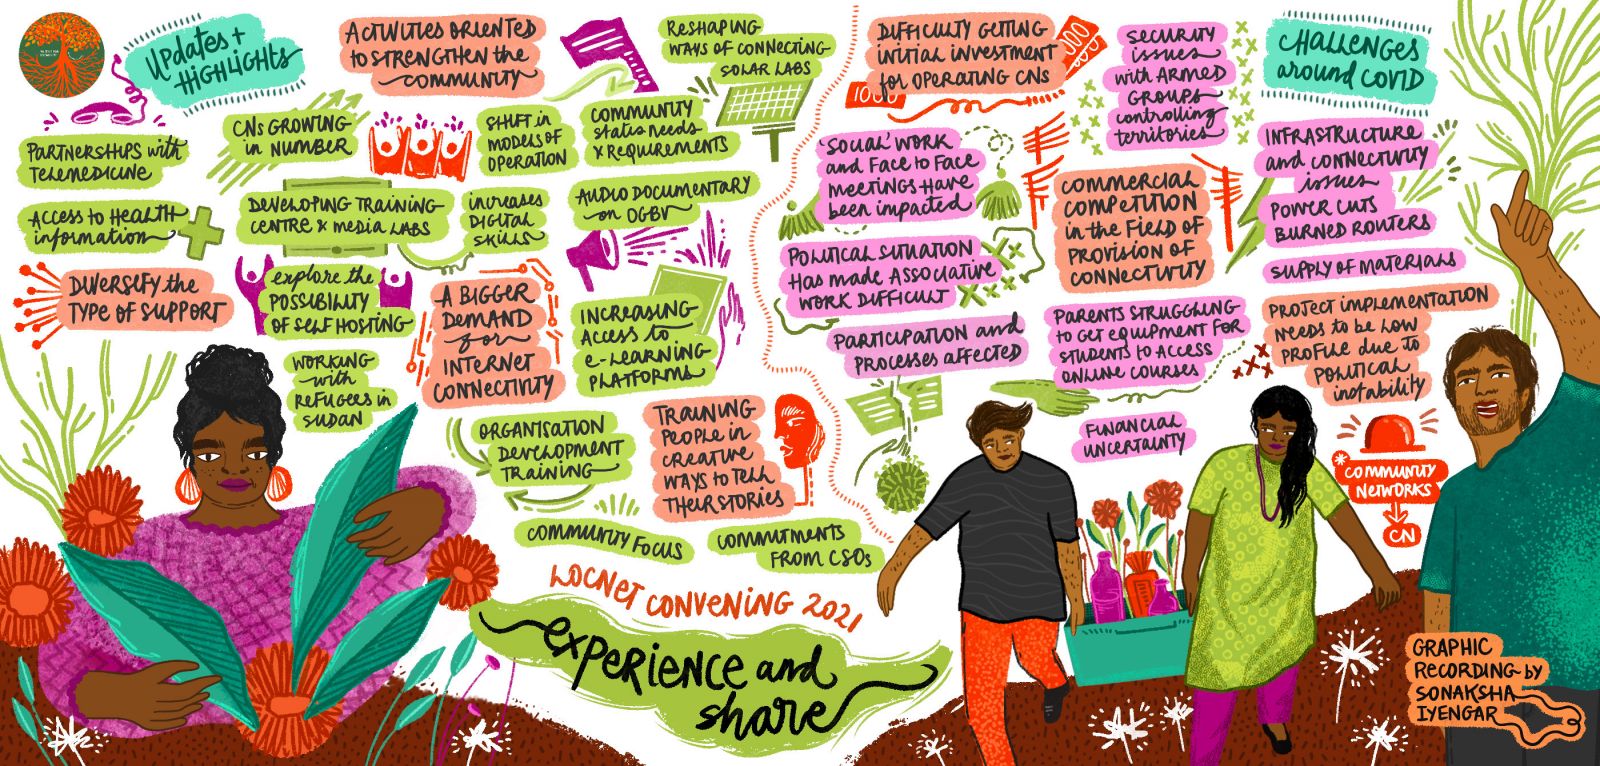 Updates +
Highlights
Activities oriented
to strengthen the
community
Reshaping
ways of connecting
solar labs
Partnerships with
telemedicine
CNs growing
in number
Shift in
models of
operation
Community
status needs
& requirements
Access to health
information
Developing training
centre & media labs
increases
digital
skills
Audio documentary
on OGBV
Diversify the
type of support
explore the
possibility
of self hosting
A bigger
demand
for
internet
connectivity
Increasing
access to
e-learning
platforms
Working
with
refugees in
Sudan
Organisation
development
training
Training
people in
creative
ways to tell
their stories
Community focus
Commitments
from CSOs
LocNet Convening 2021
experience and
share
Difficulty getting
initial investment
for operating CNs
1000
000
Security
issues
with armed
groups
controlling
territories
Challenges
around covid
'Social' work
and face to face
meetings have
been impacted
Commercial
competition
in the field of
provision of
connectivity
Infrastructure
and connectivity
issues
power cuts
burned routers
Political situation
has made associative
work difficult
Supply of materials
Participation and
processes affected
Parents struggling
to get equipment for
students to access
online courses
Project implementation
needs to be low
profile due to
political
instability
Financial
uncertainty
*Community
Networks
CN
Graphic
recording by
Sonaksha
Iyengar